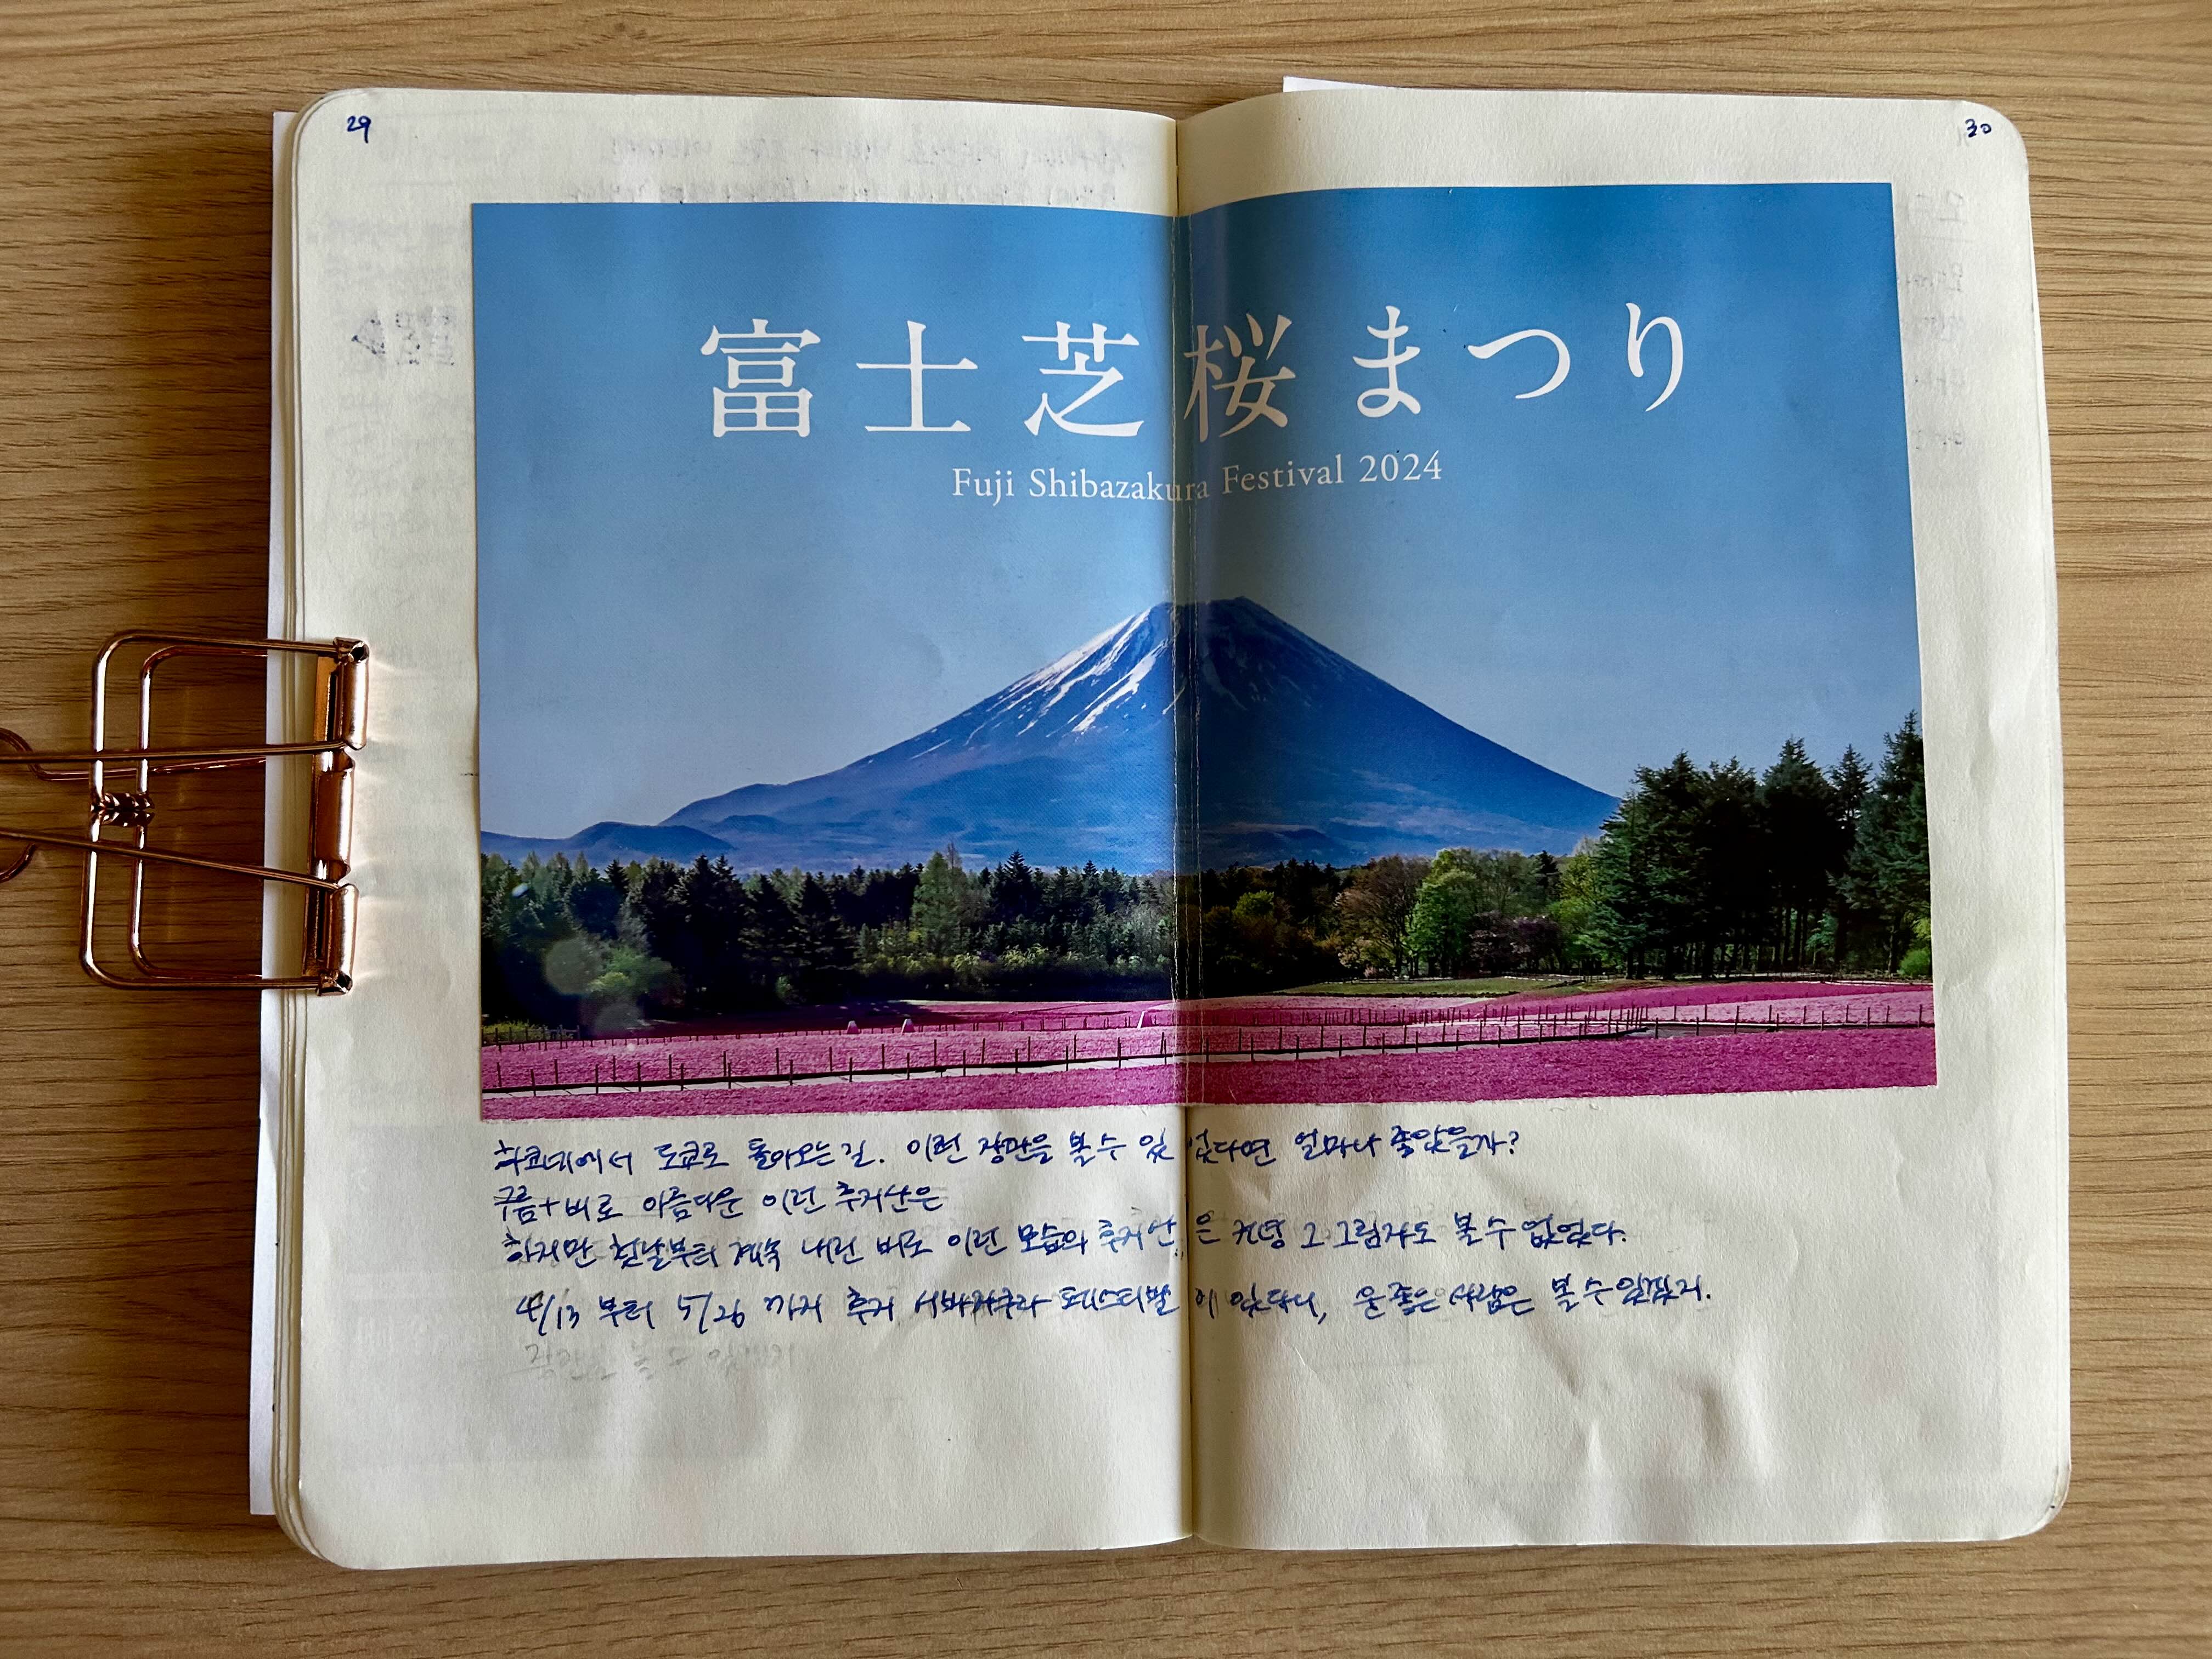 29
30
富士芝桜まつり
Fuji Shibazakura Festival 2024
하코네에서 도쿄로 돌아오는 길. 이런 장면을 볼 수 있었다면 얼마나 좋았을까?
구름+비로 아름다운 이런 후지산은
하지만 첫날부터 계속 내린 비로 이런 모습의 후지산은 커녕 그 그림자도 볼 수 없었다.
4/13 부터 5/26 까지 후지 시바자쿠라 페스티벌이 있다니, 운 좋은 사람은 볼 수 있겠지.